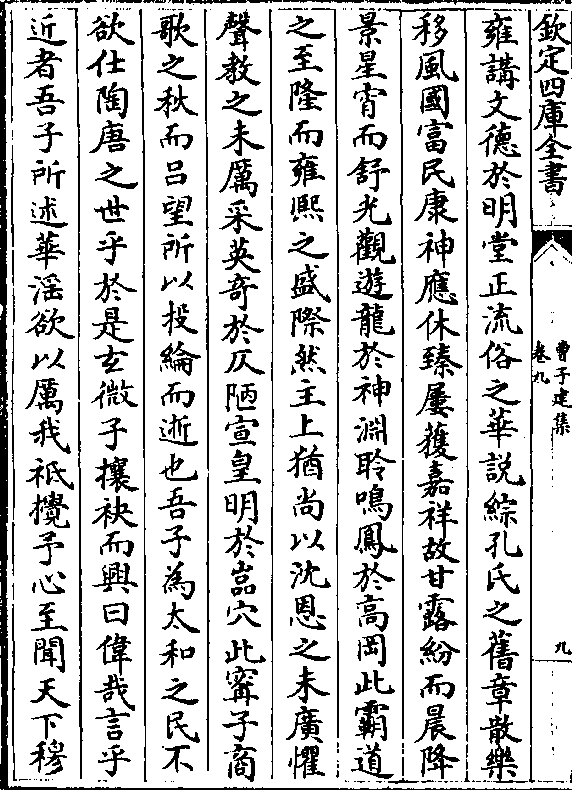 欽定四庫全書
曹子建集
卷九
九
雍講文德於明堂正流俗之華說綜孔氏之舊章散樂
移風國富民康神應休臻屢獲嘉祥故甘露紛而晨降
景星宵而舒光觀遊龍於神淵聆鳴鳳於高岡此霸道
之至隆而雍熙之盛際然主上猶尚以沈恩之未廣懼
聲教之未厲采英奇於仄陋宣皇明於嵓穴此甯子商
歌之秋而吕望所以投綸而逝也吾子為太和之民不
欲仕陶唐之世乎於是玄微子攘袂而興曰偉哉言乎
近者吾子所述華淫欲以厲我祇攪予心至聞天下穆